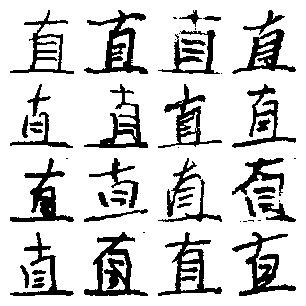 直直直直
直直直直
直直直直
直直直直